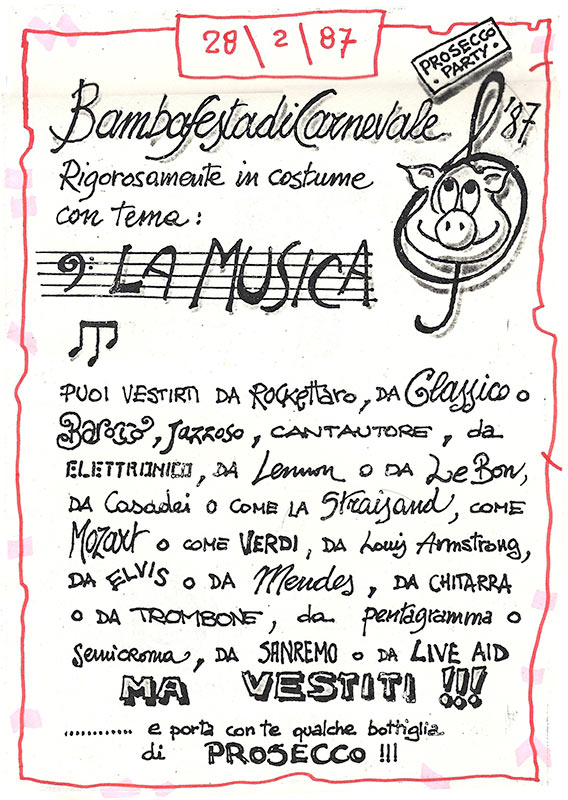 28\2\87
PROSECCO
PARTY
'87
Bambafesta di Carnevale
Rigorosamente in costume
con tema:
LA MUSICA
PUOI VESTIRTI DA Rockettaro, DA Classico o
Barocco, Jazzoso, CANTAUTORE, da
ELETTRONICO, DA Lennon O DA Le Bon,
DA Casadei O COME LA Straisand, COME
Mozart O COME VERDI, DA Louis Armstrong,
DA ELVIS O DA Mendes, DA CHITARRA
O DA TROMBONE, da pentagramma o
semicroma, DA SANREMO O DA LIVE AID
MA VESTITI !!!
............ e porta con te qualche bottiglia
di PROSECCO !!!